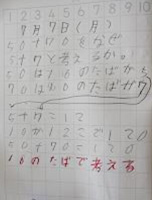 1 2 3 4 5 6 7 8 9 10
7月7日(月)
50+70をなぜ
5+7と考えるか。
50は10のたばが5
70は10のたばが7
5+7=12
10が12こで120
50+70=120
10のたばで考える